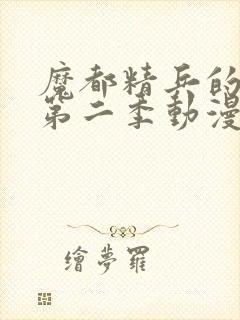 魔都精兵的
第二季動漫
繪夢羅